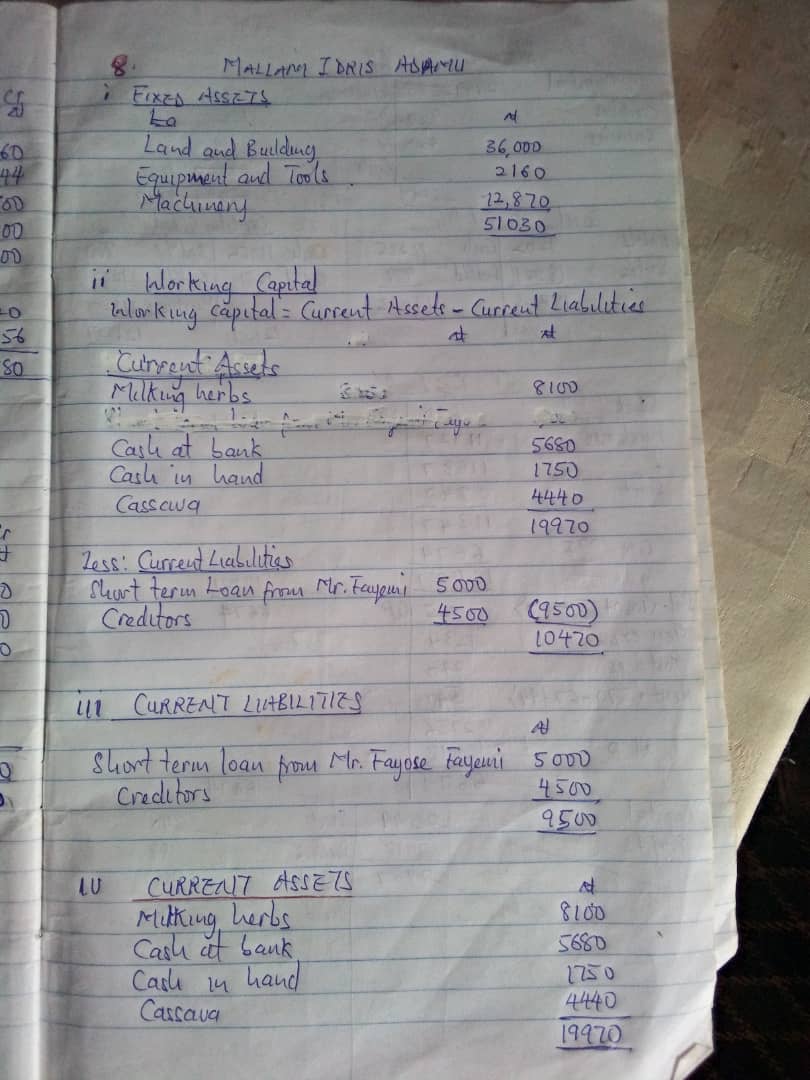 8. MALLAM IDRIS ADAMU
i FIXED ASSETS
₦
Land and Building 36,000
Equipment and Tools 2160
Machinery 12,870
51030
ii Working Capital
Working capital = Current Assets - Current Liabilities
₦ ₦
Current Assets
Milking herbs 8100
Cash at bank 5680
Cash in hand 1750
Cassava 4440
19970
Less: Current Liabilities
Short term Loan from Mr. Fayemi 5000
Creditors 4500 (9500)
10470
iii CURRENT LIABILITIES
₦
Short term loan from Mr. Fayose Fayemi 5000
Creditors 4500
9500
iv CURRENT ASSETS ₦
Milking herbs 8100
Cash at bank 5680
Cash in hand 1750
Cassava 4440
19970